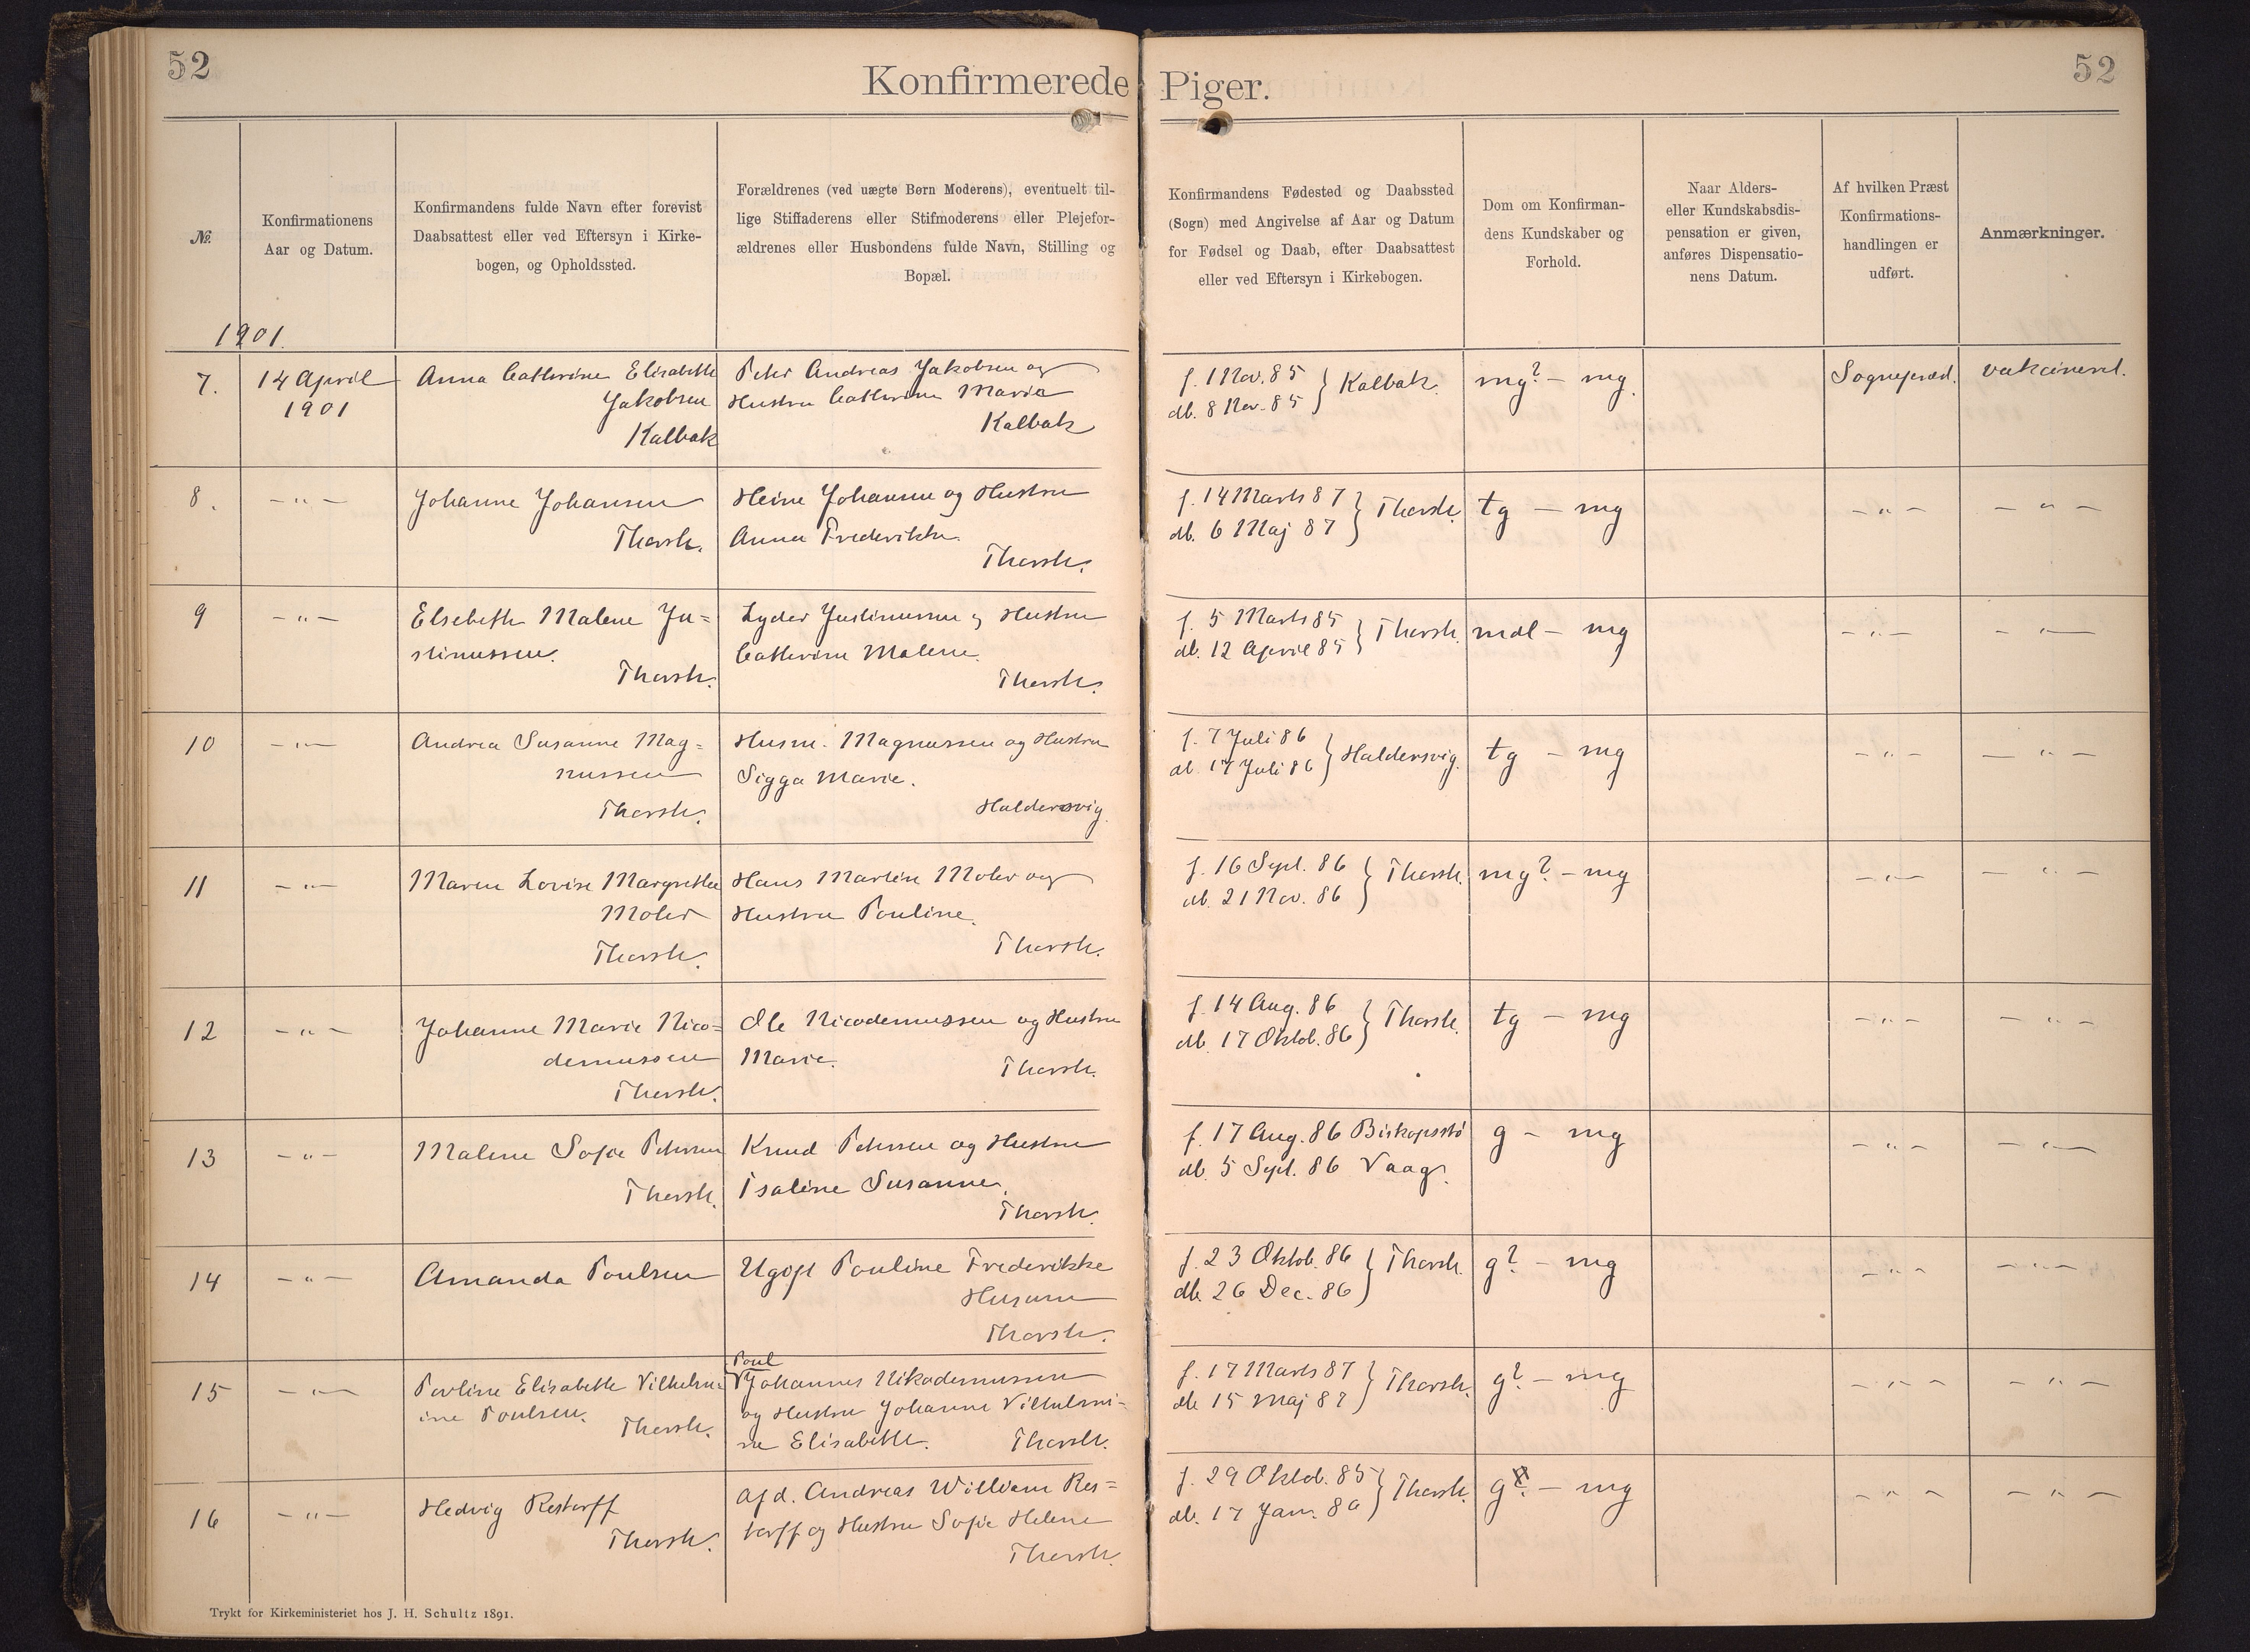 52
Konfirmerede Piger.
52
№.
Konfirmationens
Aar og Datum.
Konfirmandens fulde Navn efter forevist
Daabsattest eller ved Eftersyn i Kirke-
bogen, og Opholdssted.
Forældrenes (ved uægte Børn Moderens), eventuelt til-
lige Stiffaderens eller Stifmoderens eller Plejefor-
ældrenes eller Husbondens fulde Navn, Stilling og
Bopæl.
Konfirmandens Fødested og Daabssted
(Sogn) med Angivelse af Aar og Datum
for Fødsel og Daab, efter Daabsattest
eller ved Eftersyn i Kirkebogen.
Dom om Konfirman-
dens Kundskaber og
Forhold.
Naar Alders-
eller Kundskabsdis-
pensation er given,
anføres Dispensatio-
nens Datum.
Af hvilken Præst
Konfirmations-
handlingen er
udført.
Anmærkninger.
1901.
7.
14 April
1901
Anna Cathrine Elisabeth
Jakobsen
Kalbak
Peter Andreas Jakobsen og
Hustru Cathrine Marie
Kalbak
f. 1 Nov. 85
db. 8 Nov. 85 } Kalbak.
mg? – mg.
Sognepræst.
vakcineret.
8.
– " –
Johanne Johansen
Thorsh.
Heine Johansen og Hustru
Anna Frederikke.
Thorsh.
f. 14 Marts 87
db. 6 Maj 87 } Thorsh.
tg – mg
– " –
– " –
9
– " –
Elsebeth Malene Ju=
stinussen.
Thorsh.
Lyder Justinussen og Hustru
Cathrine Malene.
Thorsh.
f. 5 Marts 85
db. 12 April 85 } Thorsh.
mdl – mg
– " –
– " –
10
– " –
Andrea Susanne Mag=
nussen
Thorsh.
Husm. Magnussen og Hustru
Sigga Marie.
Haldersvig.
f. 7 Juli 86
db. 17 Juli 86 } Haldersvig.
tg – mg
– " –
– " –
11
– " –
Maren Lovise Margrethe
Moler
Thorsh.
Hans Martin Moler og
Hustru Pouline.
Thorsh.
f. 16 Sept. 86
db. 21 Nov. 86 } Thorsh.
mg? – mg
– " –
– " –
12
– " –
Johanne Marie Nico=
demussen
Thorsh.
Ole Nicodemussen og Hustru
Marie.
Thorsh.
f. 14 Aug. 86
db. 17 Oktob. 86 } Thorsh.
tg – mg
– " –
– " –
13
– " –
Malene Sofie Petersen
Thorsh.
Knud Petersen og Hustru
Isaline Susanne.
Thorsh.
f. 17 Aug. 86 Biskopsstø
db. 5 Sept. 86 Vaag.
g – mg
– " –
– " –
14
– " –
Amanda Poulsen
Ugift Pouline Frederikke
Husum
Thorsh.
f. 23 Oktob. 86
db. 26 Dec. 86 } Thorsh.
g? – mg
– " –
– " –
15
– " –
Povline Elisabeth Vilhelm=
ine Poulsen.
Thorsh.
Poul
Johannes Nikodemussen
og Hustru Johanne Vilhelmi-
ne Elisabeth. Thorsh.
f. 17 Marts 87
db. 15 Maj 87 } Thorsh.
g? – mg
– " –
– " –
16
– " –
Hedvig Restorff
Thorsh.
Afd. Andreas William Res=
torff og Hustru Sofie Helene
Thorsh.
f. 29 Oktob. 85
db. 17 Jan. 86 } Thorsh.
g? – mg
– " –
– " –
Trykt for Kirkeministeriet hos J. H. Schultz 1891.